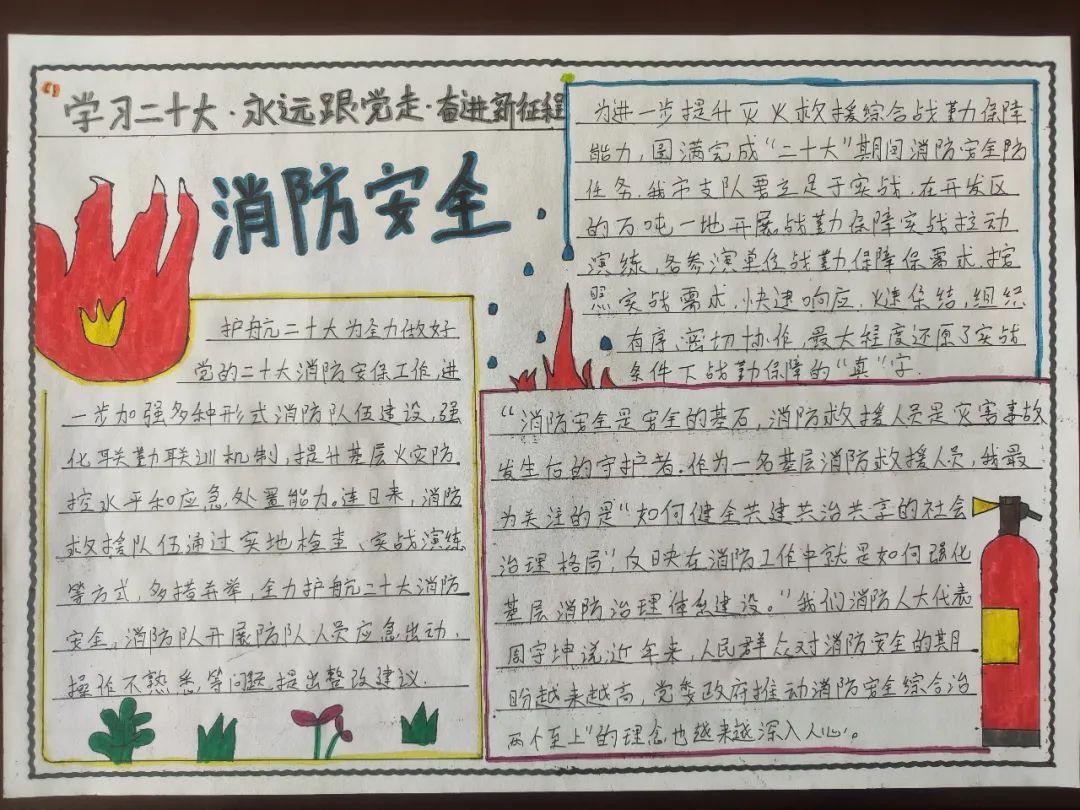 学习二十大·永远跟党走·奋进新征程
消防安全
为进一步提升灭火救援综合战勤保障
能力,圆满完成“二十大”期间消防安全防
任务.我市支队要立足于实战,在开发区
的万吨一地开展战勤保障实战拉动
演练,各参演单位战勤保障保需求.按
照实战需求.快速响应.速集结,组织
有序、密切协作,最大程度还原了实战
条件下战勤保障的“真”字.
护航二十大为全力做好
党的二十大消防安保工作,进
一步加强多种形式消防队伍建设,强
化联勤联训机制,提升基层火灾防
控水平和应急处置能力。连日来,消防
救援队伍通过实地检查、实战演练
等方式,多措并举,全力护航二十大消防
安全,消防队开展防队人员应急出动,
操作不熟悉等问题提出整改建议.
“消防安全是安全的基石,消防救援人员是灾害事故
发生后的守护者.作为一名基层消防救援人员,我最
为关注的是“如何健全共建共治共享的社会
治理格局”,反映在消防工作中就是如何强化
基层消防治理体系建设。”我们消防人大代表
周宇坤说,近年来,人民群众对消防安全的期
盼越来越高,党委政府推动消防安全综合治
两个至上”的理念也越来越深入人心。